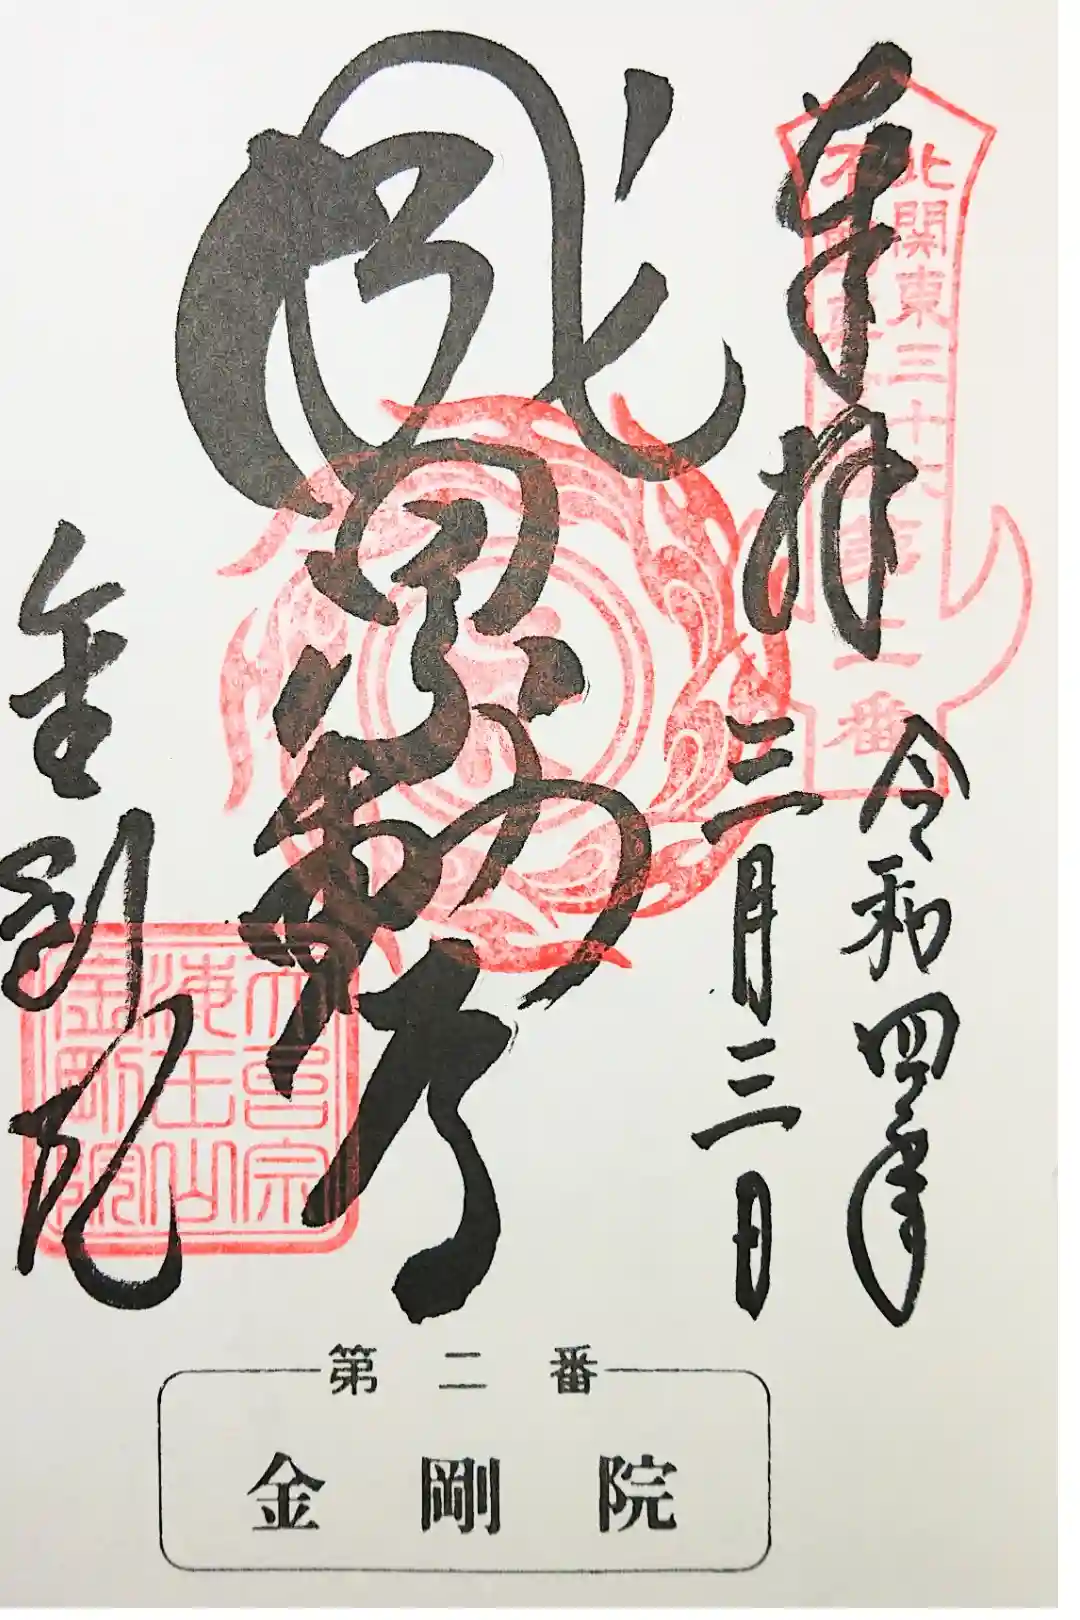 奉拝
令和四年
三月三日
北関東三十六
不動尊霊場第二番
不動尊
金剛院
天台宗
海王山
金剛院
第二番
金剛院